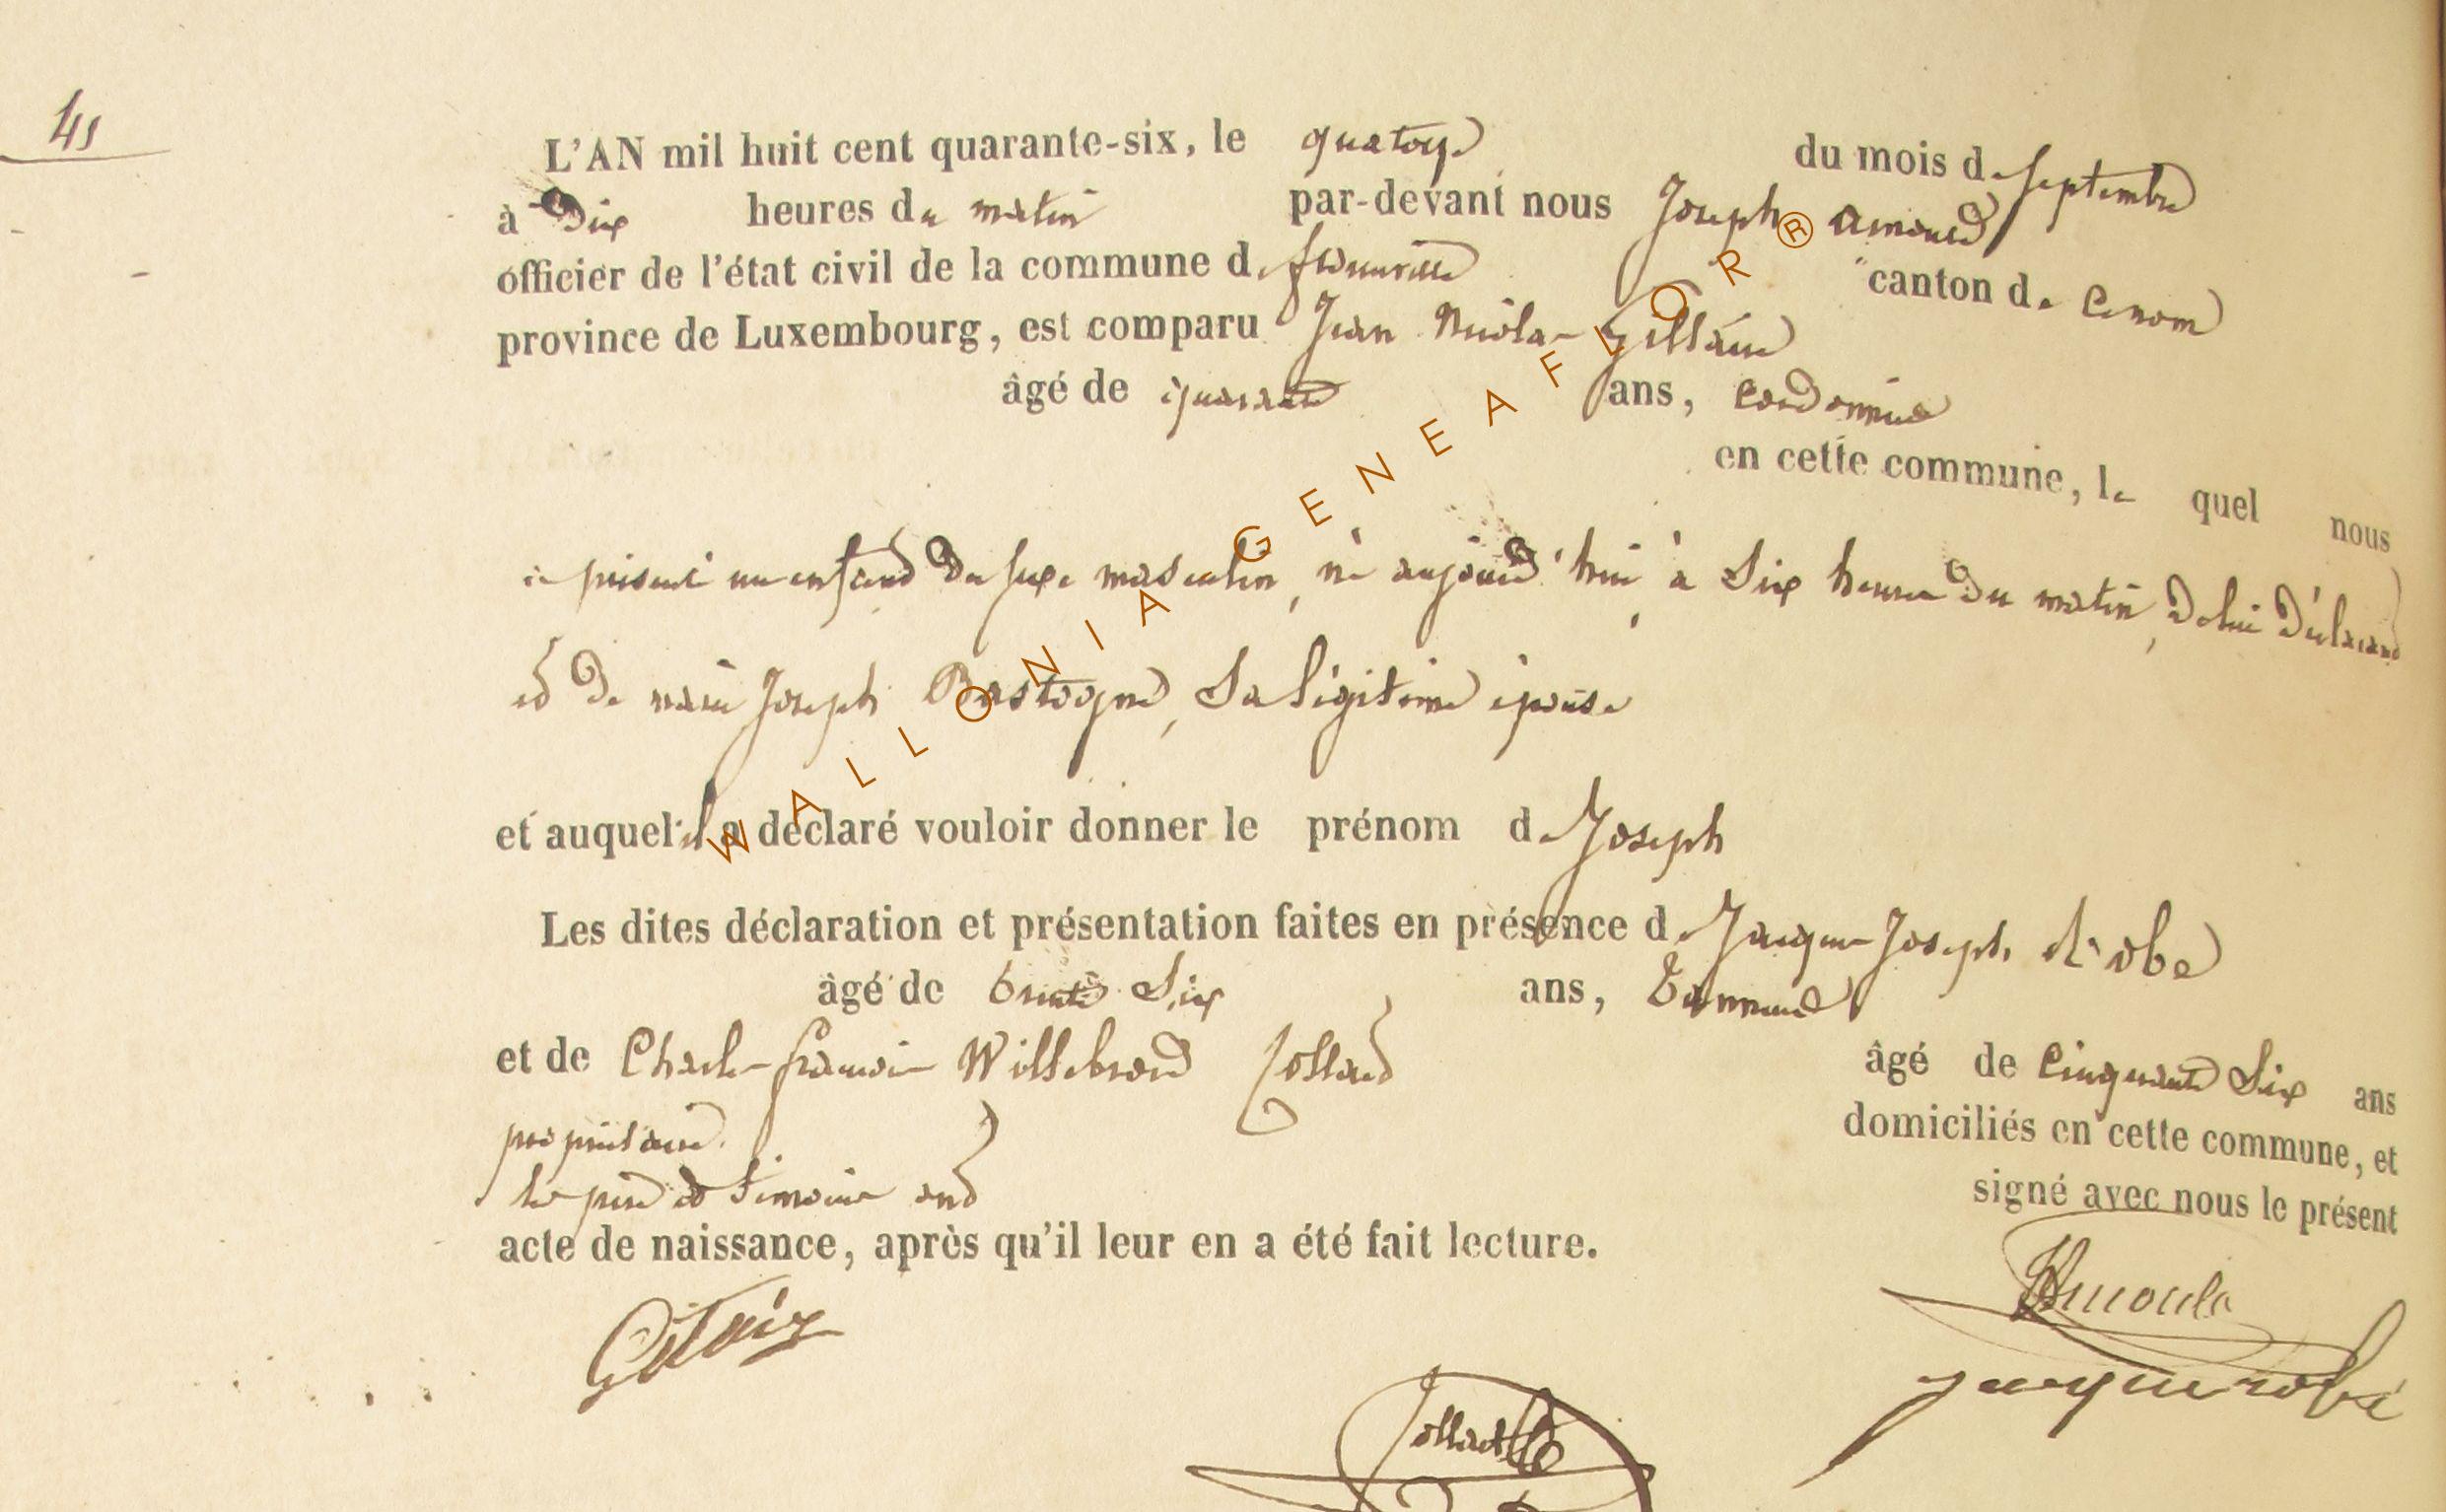 41
L'AN mil huit cent quarante-six, le quatorze du mois de septembre
à Dix heures du matin par-devant nous Joseph
officier de l'état civil de la commune de canton de
province de Luxembourg, est comparu Jean Nicolas Gillain
âgé de quarante ans, cordonnier
en cette commune, le quel nous
a présenté un enfant du sexe masculin, né aujourd'hui à Six heures du matin, de lui déclarant
et de marie Joseph Bastogne, Sa légitime épouse
et auquel il a déclaré vouloir donner le prénom de Joseph
Les dites déclaration et présentation faites en présence de Jacques Joseph Robe
âgé de trente Six ans, Tanneur
et de Charles françois Willebrord Collard âgé de Cinquante Six ans
propriétaire domiciliés en cette commune, et
les père et témoins ont signé avec nous le présent
acte de naissance, après qu'il leur en a été fait lecture.
WALLONIA GENEAFLOR ®